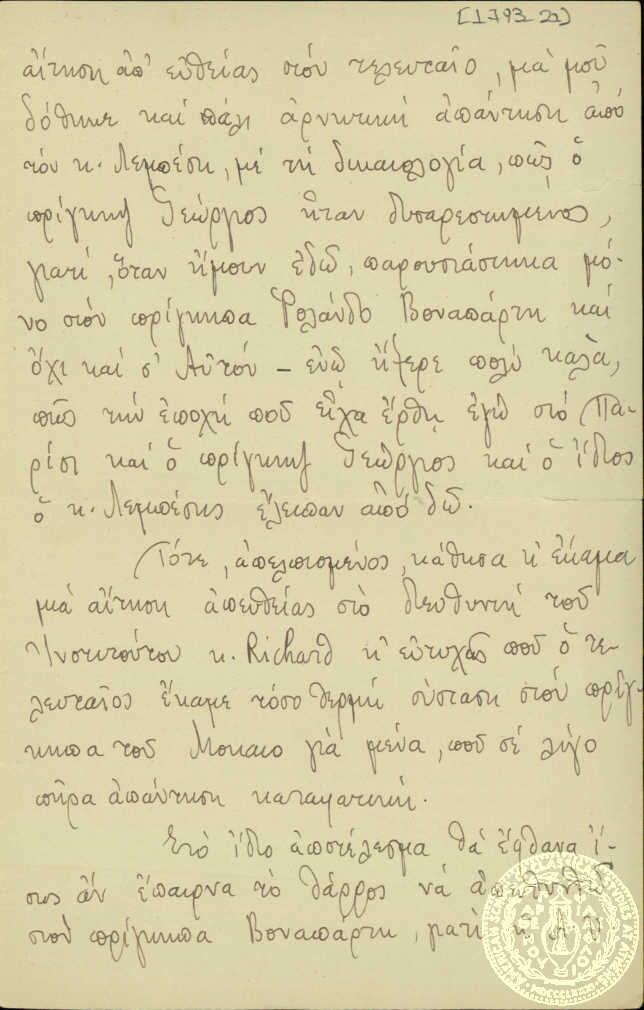 [1793-2a)
αἴτηση ἀπ' εὐθείας στόν τελευταῖο, μὰ μοῦ
δόθηκε καί πάλι ἀρνητική ἀπάντηση ἀπό
τόν κ. Λεμπέση, μέ τή δικαιολογία, πῶς ὁ
πρίγκηψ Γεώργιος ἦταν δυσαρεστημένος,
γιατί, ὅταν ἤμουν ἐδῶ, παρουσιάστηκα μό-
νο στόν πρίγκηπα Ρολάνδο Βοναπάρτη καί
ὄχι καί σ' Αὐτόν – ἐνῶ ἤξερε πολύ καλά,
πῶς τήν ἐποχή ποῦ εἶχα ἔρθῃ ἐγώ στό Πα-
ρίσι καί ὁ πρίγκηψ Γεώργιος καί ὁ ἴδιος
ὁ κ. Λεμπέσης ἔλειπαν ἀπό δῶ.
Τότε, ἀπελπισμένος, κάθησα κ' ἔκαμα
μιά αἴτηση ἀπευθείας στό διευθυντή τοῦ
Ἰνστιτούτου κ. Richard κ' εὐτυχῶς ποῦ ὁ τε-
λευταῖος ἔκαμε τόσο θερμή σύσταση στόν πρίγ-
κηπα τοῦ Μονακο γιά μένα, ποῦ σέ λίγο
πῆρα ἀπάντηση καταφατική.
Στό ἴδιο ἀποτέλεσμα θά ἔφθανα ἴ-
σως ἄν ἔπαιρνα τό θάρρος νά ἀπευθυνθῶ
στόν πρίγκηπα Βοναπάρτη, γιατί κ' Α. Υ